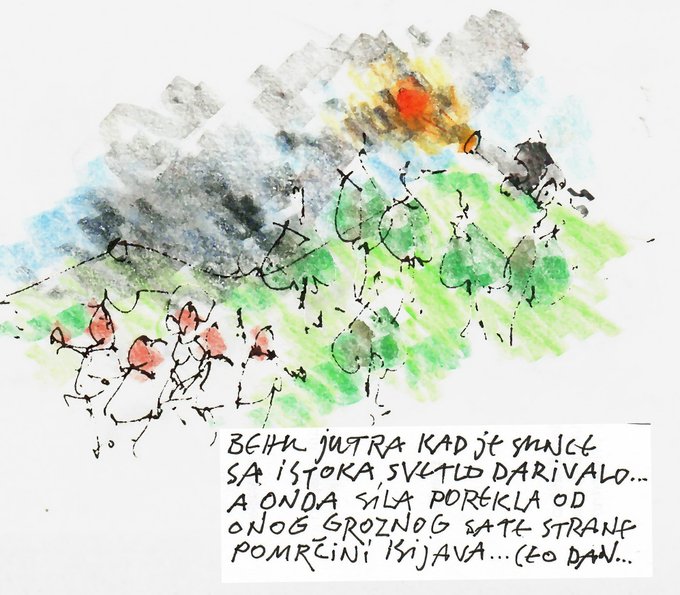 BEHU JUTRA KAD JE SUNCE
SA ISTOKA SVETLO DARIVALO...
A ONDA SILA POREKLA OD
ONOG GROZNOG SA TE STRANE
POMRČINI ISIJAVA... CEO DAN...